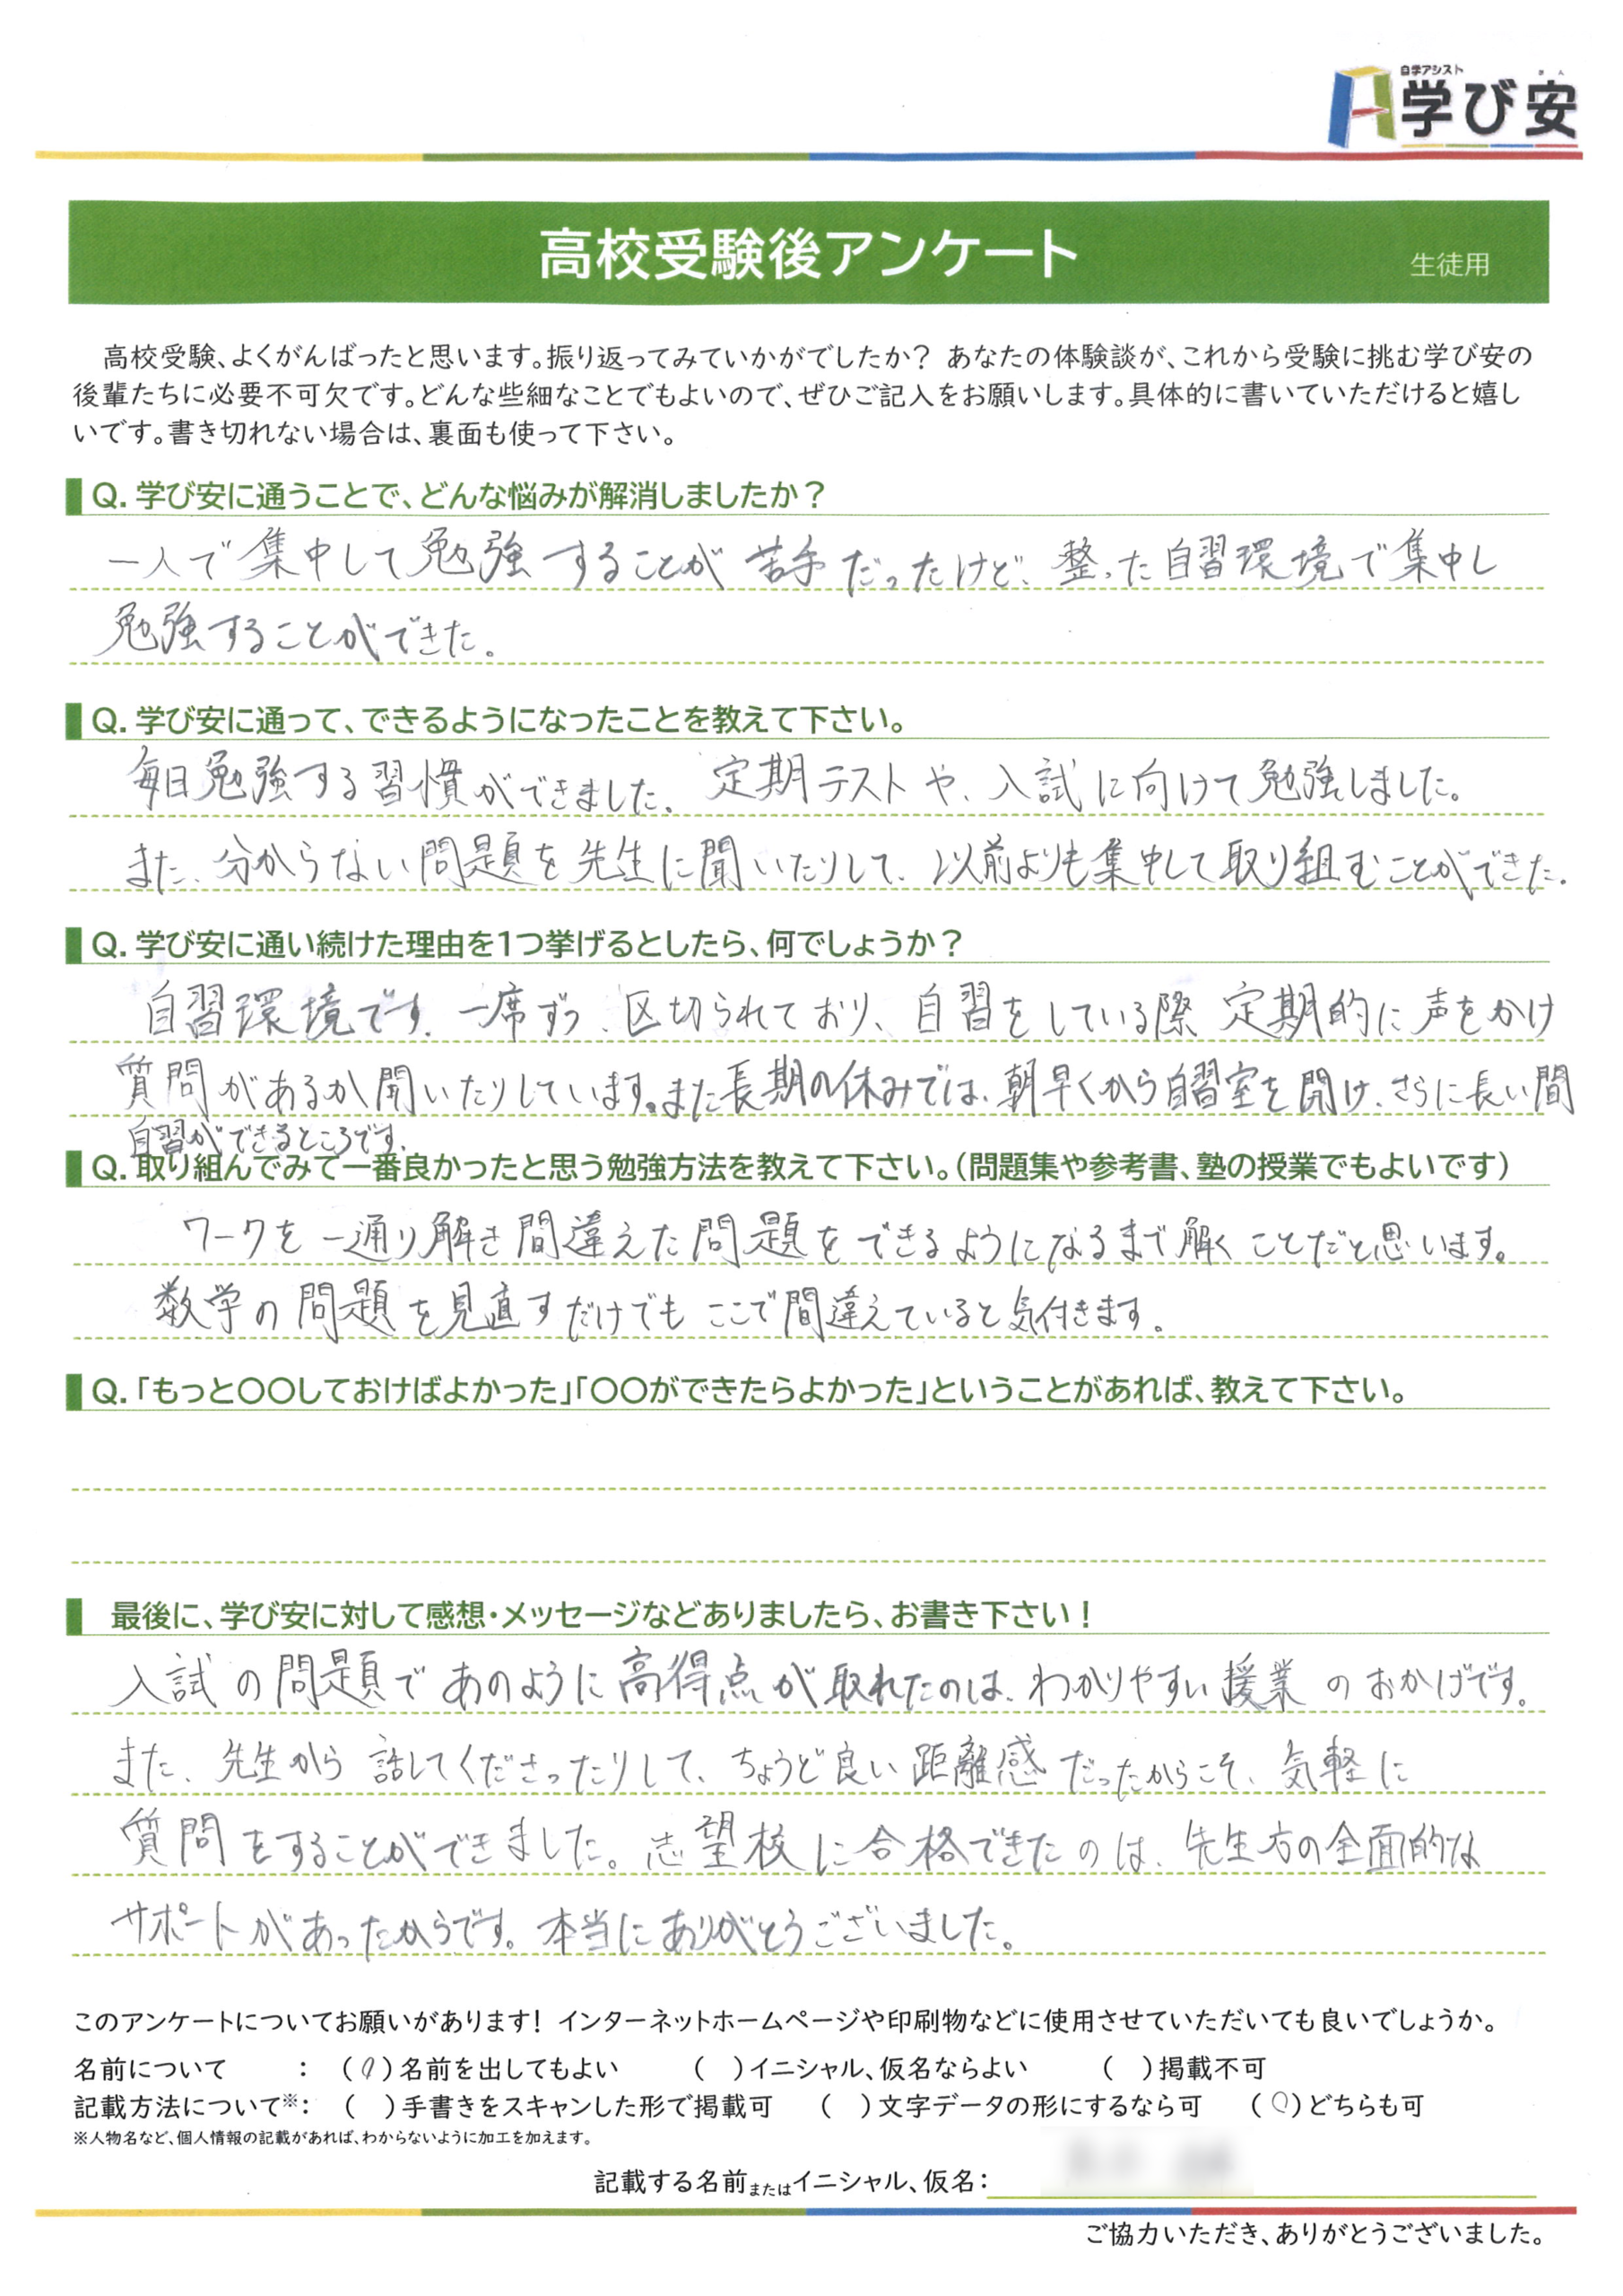 自学アシスト
あん
学び安
高校受験後アンケート
生徒用
高校受験、よくがんばったと思います。振り返ってみていかがでしたか? あなたの体験談が、これから受験に挑む学び安の
後輩たちに必要不可欠です。どんな些細なことでもよいので、ぜひご記入をお願いします。具体的に書いていただけると嬉し
いです。書き切れない場合は、裏面も使って下さい。
Q. 学び安に通うことで、どんな悩みが解消しましたか?
一人で集中して勉強することが苦手だったけど、整った自習環境で集中し
勉強することができた。
Q. 学び安に通って、できるようになったことを教えて下さい。
毎日勉強する習慣ができました。定期テストや、入試に向けて勉強しました。
また、分からない問題を先生に聞いたりして、以前よりも集中して取り組むことができた。
Q. 学び安に通い続けた理由を1つ挙げるとしたら、何でしょうか?
自習環境です。一席ずつ、区切られており、自習をしている際 定期的に声をかけ
質問があるか聞いたりしています。また長期の休みでは、朝早くから自習室を開け、さらに長い間
自習ができるところです。
Q. 取り組んでみて一番良かったと思う勉強方法を教えて下さい。(問題集や参考書、塾の授業でもよいです)
ワークを一通り解き間違えた問題をできるようになるまで解くことだと思います。
数学の問題を見直すだけでもここで間違えていると気付きます。
Q.「もっと〇〇しておけばよかった」「〇〇ができたらよかった」ということがあれば、教えて下さい。
最後に、学び安に対して感想・メッセージなどありましたら、お書き下さい!
入試の問題であのように高得点が取れたのは、わかりやすい援業のおかげです。
また、先生から話してくださったりして、ちょうど良い距離感だったからこそ、気軽に
質問をすることができました。志望校に合格できたのは、先生方の全面的な
サポートがあったからです。本当にありがとうございました。
このアンケートについてお願いがあります! インターネットホームページや印刷物などに使用させていただいても良いでしょうか。
名前について : (〇)名前を出してもよい ( )イニシャル、仮名ならよい ( )掲載不可
記載方法について※: ( )手書きをスキャンした形で掲載可 ( )文字データの形にするなら可 (〇)どちらも可
※人物名など、個人情報の記載があれば、わからないように加工を加えます。
記載する名前またはイニシャル、仮名:
ご協力いただき、ありがとうございました。